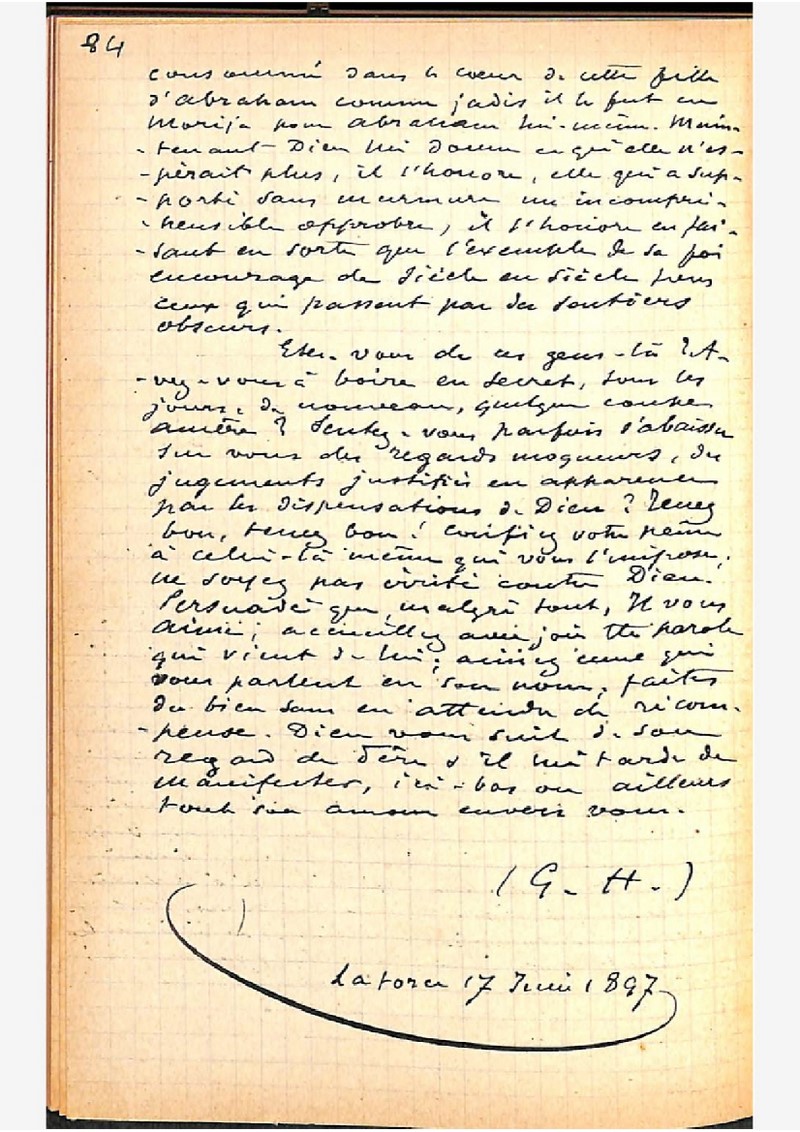 84
consommé dans le cœur de cette fille
d'abraham comme jadis il le fut en
Morija pour abraham lui-même. Main-
-tenant Dieu lui donne ce qu'elle n'es-
-pérait plus, il l'honore, elle qui a sup-
-porté sans murmure un incompré-
-hensible opprobre, il l'honore en fai-
-sant en sorte que l'exemple de sa foi
encourage de siècle en siècle tous
ceux qui passent par des sentiers
obscurs.
Etes-vous de ces gens-là ? A-
-vez-vous à boire en secret, tous les
jours, de nouveau, quelque coupe
amère ? Sentez-vous parfois s'abaisser
sur vous des regards moqueurs, des
jugements justifiés en apparence
par les dispensations de Dieu ? Tenez
bon, tenez bon ! confiez votre peine
à celui-là même qui vous l'impose,
ne soyez pas irrité contre Dieu.
Persuadé que, malgré tout, Il vous
aime ; accueillez avec joie tte parole
qui vient de lui ; aimez ceux qui
vous parlent en son nom, faites
du bien sans en attendre de récom-
-pense. Dieu vous suit de son
regard de Père & il lui tarde de
manifester, ici-bas ou ailleurs
tout son amour envers vous.
(G. H.)
Laforce 17 Juin 1897